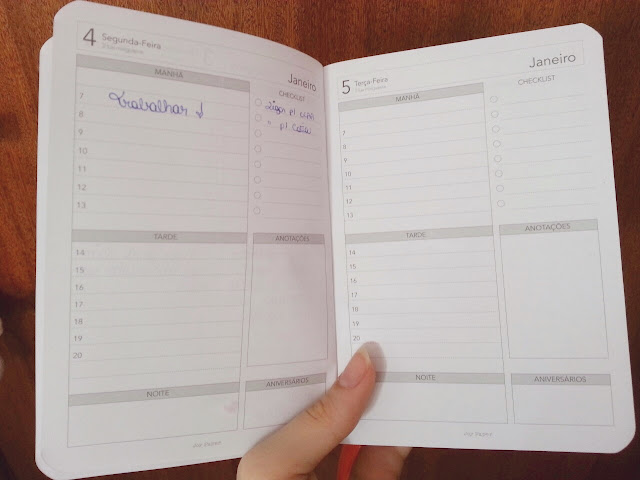 4 Segunda-Feira
Janeiro
MANHÃ
CHECKLIST
7 Trabalhar
Ligar p/
8
" p/
9
10
11
12
13
TARDE
ANOTAÇÕES
14
15
16
17
18
19
20
NOITE
ANIVERSÁRIOS
5 Terça-Feira
Janeiro
MANHÃ
CHECKLIST
7
8
9
10
11
12
13
TARDE
ANOTAÇÕES
14
15
16
17
18
19
20
NOITE
ANIVERSÁRIOS